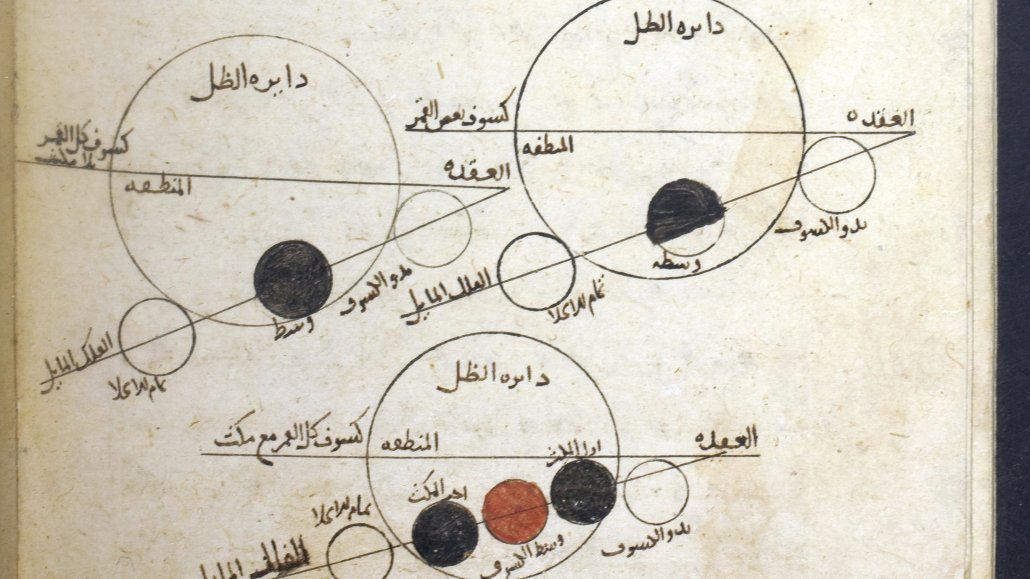 دايره الظل
العقده
كسوف بعض القمر
المنطقه
بدو الكسوف
وسطه
تمام الانجلا
الفلك المايل
دايره الظل
كسوف كل القمر
بلا مكث
العقده
المنطقه
بدو الكسوف
وسط
تمام الانجلا
الفلك المايل
دايره الظل
العقده
المنطقه
كسوف كل القمر مع مكث
اول المكث
اخر المكث
بدو الكسوف
وسط الكسوف
تمام الانجلا
الفلك المايل